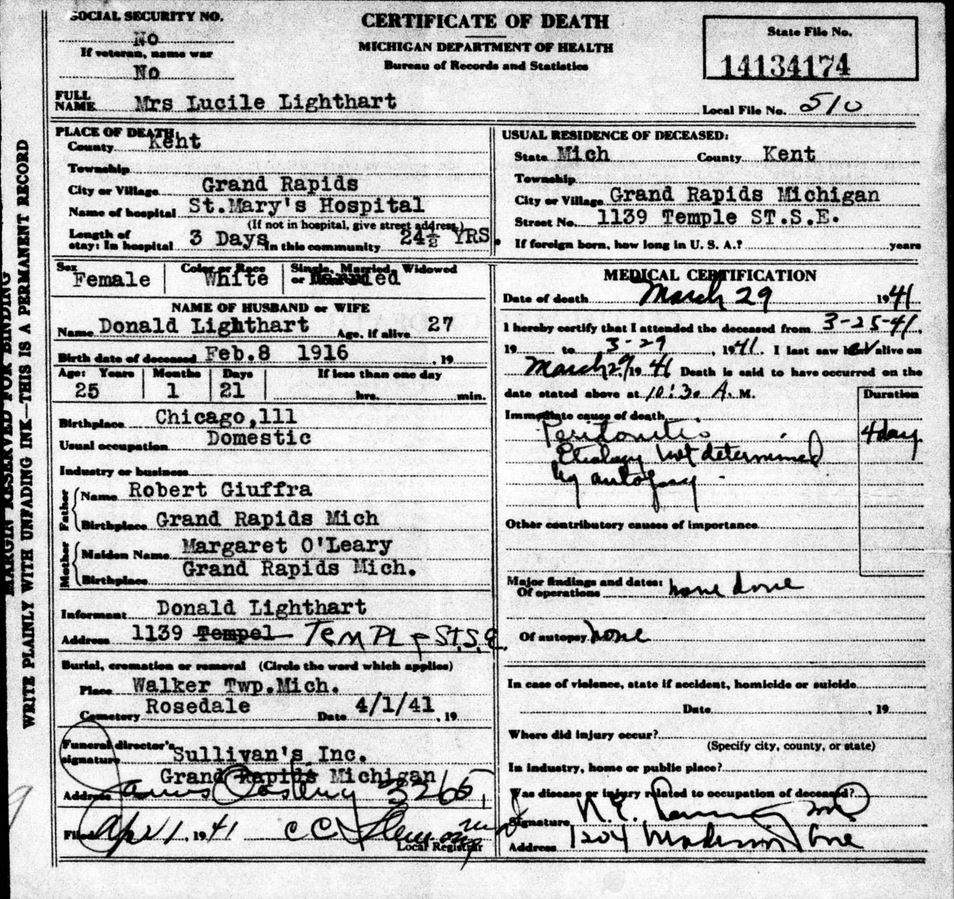 SOCIAL SECURITY NO.
No
If veteran, name war
No
CERTIFICATE OF DEATH
MICHIGAN DEPARTMENT OF HEALTH
Bureau of Records and Statistics
State File No.
14134174
FULL NAME Mrs Lucile Lighthart
Local File No. 510
PLACE OF DEATH:
County Kent
Township
City or Village Grand Rapids
Name of hospital St.Mary's Hospital
(If not in hospital, give street address)
Length of stay: In hospital 3 Days In this community 24½ YRS.
USUAL RESIDENCE OF DECEASED:
State Mich County Kent
Township
City or Village Grand Rapids Michigan
Street No. 1139 Temple ST.S.E.
If foreign born, how long in U. S. A.? years
Sex Female Color or Race White Single, Married, Widowed or
NAME OF HUSBAND or WIFE
Name Donald Lighthart Age, if alive 27
Birth date of deceased Feb.8 1916 , 19
Age: Years Months Days If less than one day
25 1 21 hrs. min.
Birthplace Chicago,111
Usual occupation Domestic
Industry or business
Father Name Robert Giuffra
Birthplace Grand Rapids Mich
Mother Maiden Name Margaret O'Leary
Birthplace Grand Rapids Mich.
Informant Donald Lighthart
Address 1139 Tempel TEMPLE ST.S.E.
Burial, cremation or removal (Circle the word which applies)
Place Walker Twp.Mich.
Cemetery Rosedale Date 4/1/41 , 19
Funeral director's signature Sullivan's Inc.
Grand Rapids Michigan
Address James 3265
Filed Apr 1 , 19 41 C C
Local Registrar
MEDICAL CERTIFICATION
Date of death March 29 1941
I hereby certify that I attended the deceased from 3-25-41,
19 to 3-29 , 1941. I last saw her alive on
March 29, 19 41 Death is said to have occurred on the
date stated above at 10:30 A. M.
Duration
Immediate cause of death
Peritonitis 4 day
Etiology not determined
by autopsy.
Other contributory causes of importance
Major findings and dates:
Of operations none done
Of autopsy None
In case of violence, state if accident, homicide or suicide
Date , 19
Where did injury occur?
(Specify city, county, or state)
In industry, home or public place?
Was disease or injury related to occupation of deceased?
Signature N.E. MD
Address 1204 Madison Ave
MARGIN RESERVED FOR BINDING
WRITE PLAINLY WITH UNFADING INK—THIS IS A PERMANENT RECORD